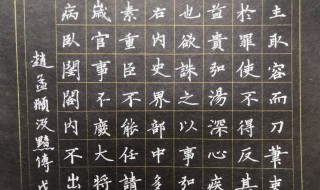 主取容而刀筆吏
於罪使不得反其
益貴弘湯深心疾
也欲誅之以事弘
右內史界部中多
素重臣不能任請
歲官事不廢大將
病臥閨閤內不出
趙孟頫汲黯傳戊